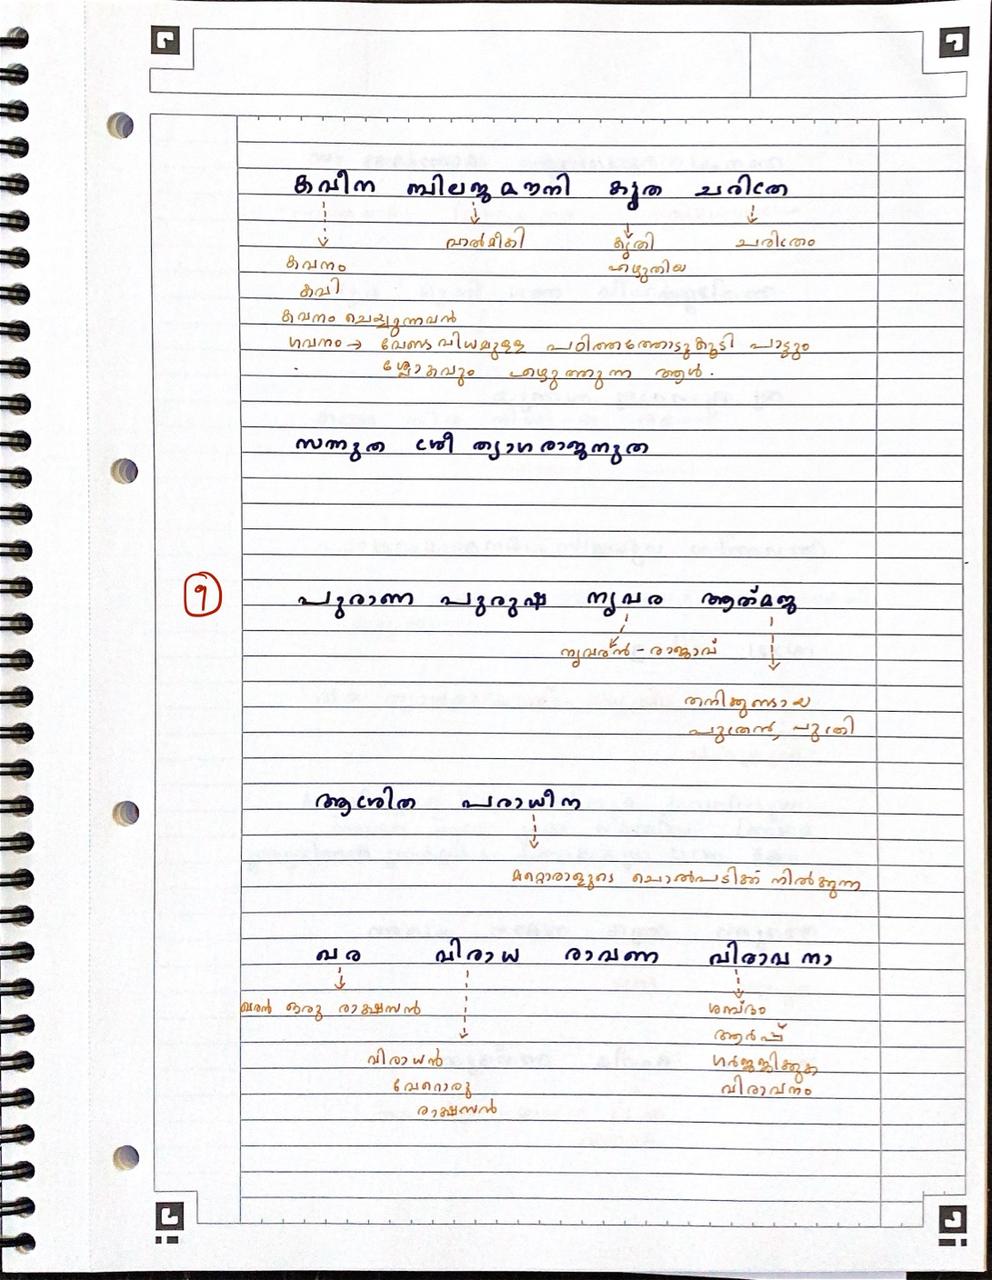 കവീന ബിലജ മൗനി കൃത ചരിത്ര
വാൽമീകി കൃതി ചരിത്രം
കവനം എഴുതിയ
കവി
കവനം ചെയ്യുന്നവൻ
ഗവനം → വേണ്ടവിധമുള്ള പഠിത്തത്തോടുകൂടി പാട്ടും
ശ്ലോകവും എഴുത്തുന്ന ആൾ.
സന്നുത ശ്രീ ത്യാഗരാജനുത
9 പുരാണ പുരുഷ നൃവര ആത്മജ
നൃവരൻ - രാജാവ്
തനിക്കുണ്ടായ
പുത്രൻ, പുത്രി
ആശ്രിത പരാധീന
മറ്റൊരാളുടെ ചൊൽപടിക്ക് നിൽക്കുന്ന
ഖര വിരാധ രാവണ വിരാവനാ
ഖരൻ ഒരു രാക്ഷസൻ ശബ്ദം
ആർപ്പ്
വിരാധൻ ഗർജ്ജിക്കുക
വേറൊരു വിരാവനം
രാക്ഷസൻ